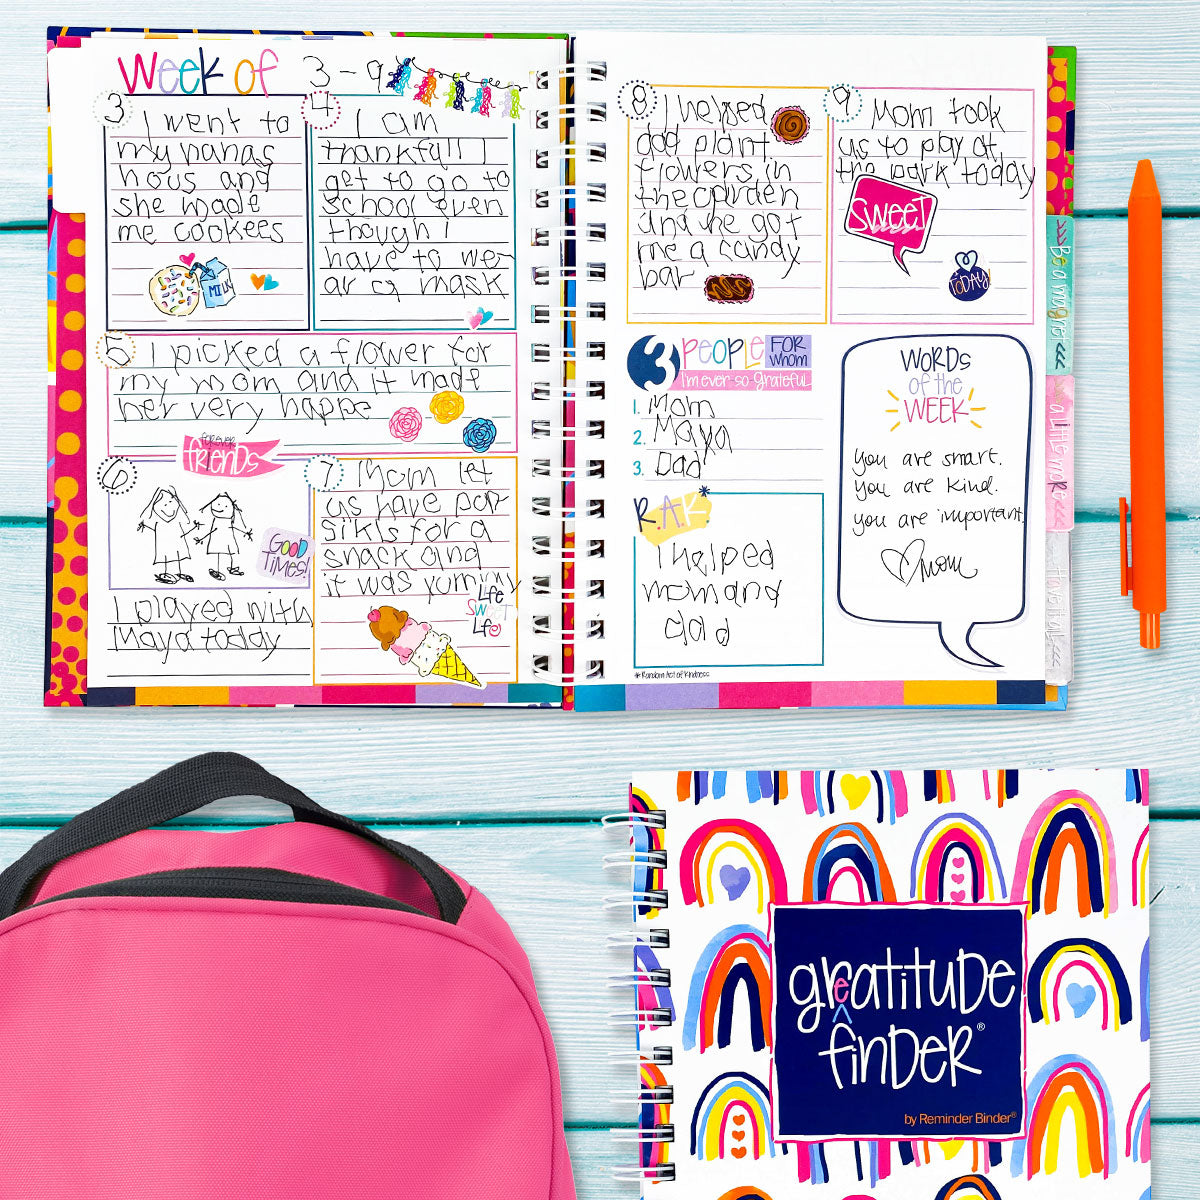 Week of 3-9
3
I went to
my nanas
hous and
she made
me cookees
MILK
4
I am
thankfull I
get to go to
school even
though I
have to we-
ar a mask
5
I picked a flower for
my mom and it made
her very happe
forever
friends
6
GOOD
TIMES!
I played with
Maya today
7
Mom let
us have pop
sikls for a
snack and
it was yummy
Life
SWEET
Life
8
I helped
dad plant
flowers in
the garden
and he got
me a candy
bar
9
Mom took
us to play at
the park today
SWEET
TODAY
3 PEOPLE FOR WHOM
I'm ever-so-grateful
1. Mom
2. Maya
3. Dad
R.A.K.*
I helped
mom and
dad
*Random Act of Kindness
WORDS
of the
WEEK
you are smart.
you are kind.
you are important.
♡mom
a little more
greatitude
finder®
by Reminder Binder®